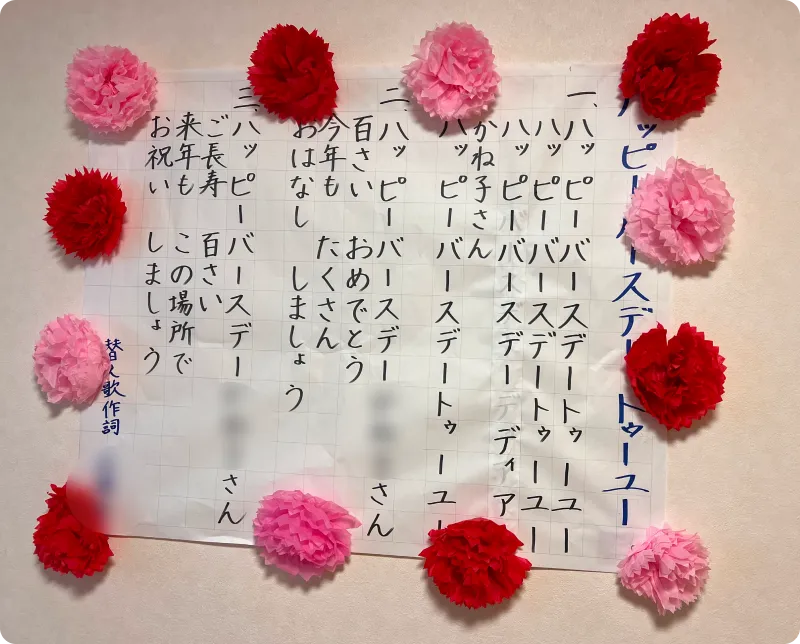 ハッピーバースデートゥーユー
一、ハッピーバースデートゥーユー
ハッピーバースデートゥーユー
ハッピーバースデーディア
かね子さん
ハッピーバースデートゥーユー
二、ハッピーバースデー さん
百さい おめでとう
今年も たくさん
おはなし しましょう
三、ハッピーバースデー さん
ご長寿 百さい
来年も この場所で
お祝い しましょう
替え歌作詞